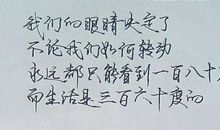 我们的眼睛决定了
不论我们如何转动
永远都只能看到一百八十
而生活是三百六十度的